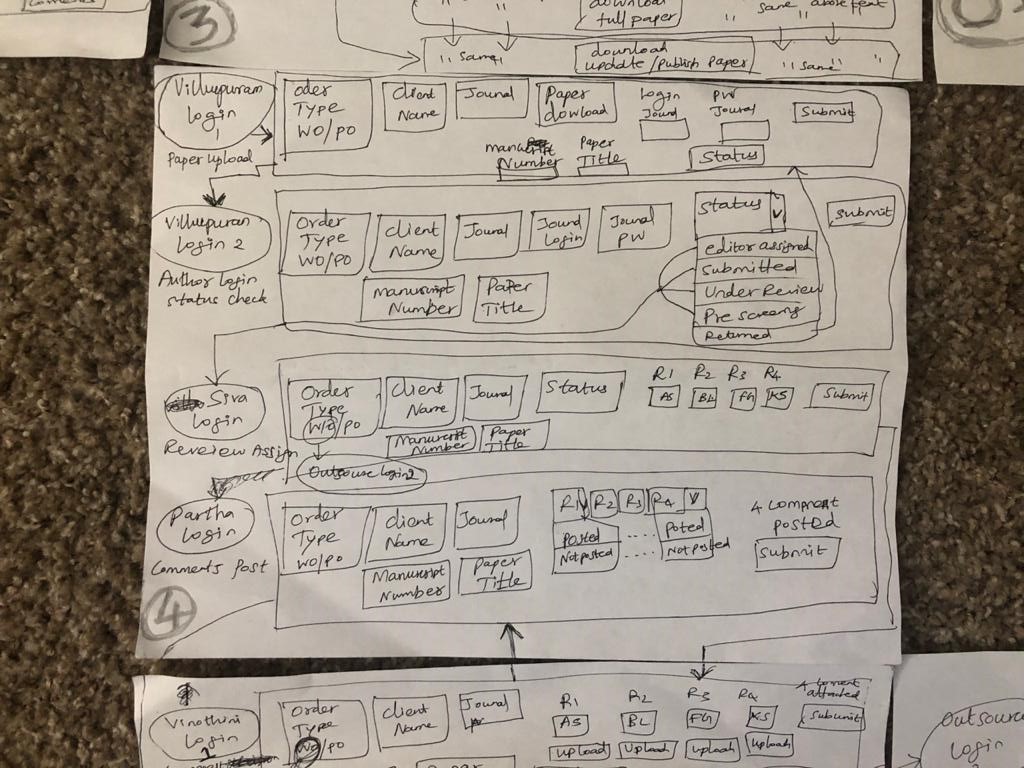 3
download
full paper
" same above text
" same "
download
update/publish paper
" same "
Villupuram
Login
1
Paper upload
oder
TYPE
WO/PO
Client
Name
Jounal
Paper
dowload
Login
Jound
PW
Joural
Submit
Number
Paper
Title
Status
Villupuran
Login 2
Author login
status check
Order
Type
WO/PO
Client
Name
Joural
Jound
Login
Jounal
PW
Status
V
Submit
editor assigned
Submitted
Under Review
Pre screeng
Returned
Manuscript
Number
Paper
Title
Siva
Login
Review Assign
Order
Type
WO/PO
Client
Name
Journal
Status
R1 R2 R3 R4
AS BL FG KS
Submit
Manuscript
Number
Paper
Title
Outsouse login 2
Partha
Login
Comments Post
Order
Type
WO/PO
Client
Name
Joural
R1 R2 R3 R4 V
Posted .... Poted
Not posted .... Not posted
4 Comment
posted
Submit
Manuscript
Number
Paper
Title
4
Vinothini
Login
1
Order
Type
WO/PO
Client
Name
Jounal
R1 R2 R3 R4
AS BL FG KS
upload Upload upload upload
Subumit
Outsource
Login